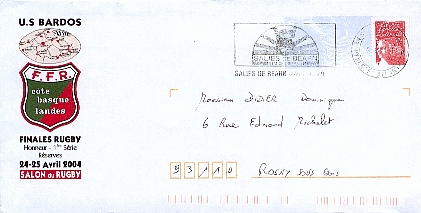 U.S BARDOS
F.F.R.
côte
basque
landes
FINALES RUGBY
Honneur - 1ère Série
Réserves
24-25 Avril 2004
SALON du RUGBY
SALIES DE BEARN
SALIES DE BEARN
Monsieur DIDIER Dominique
6 Rue Edmond Michelet
93110 ROSNY sous Bois